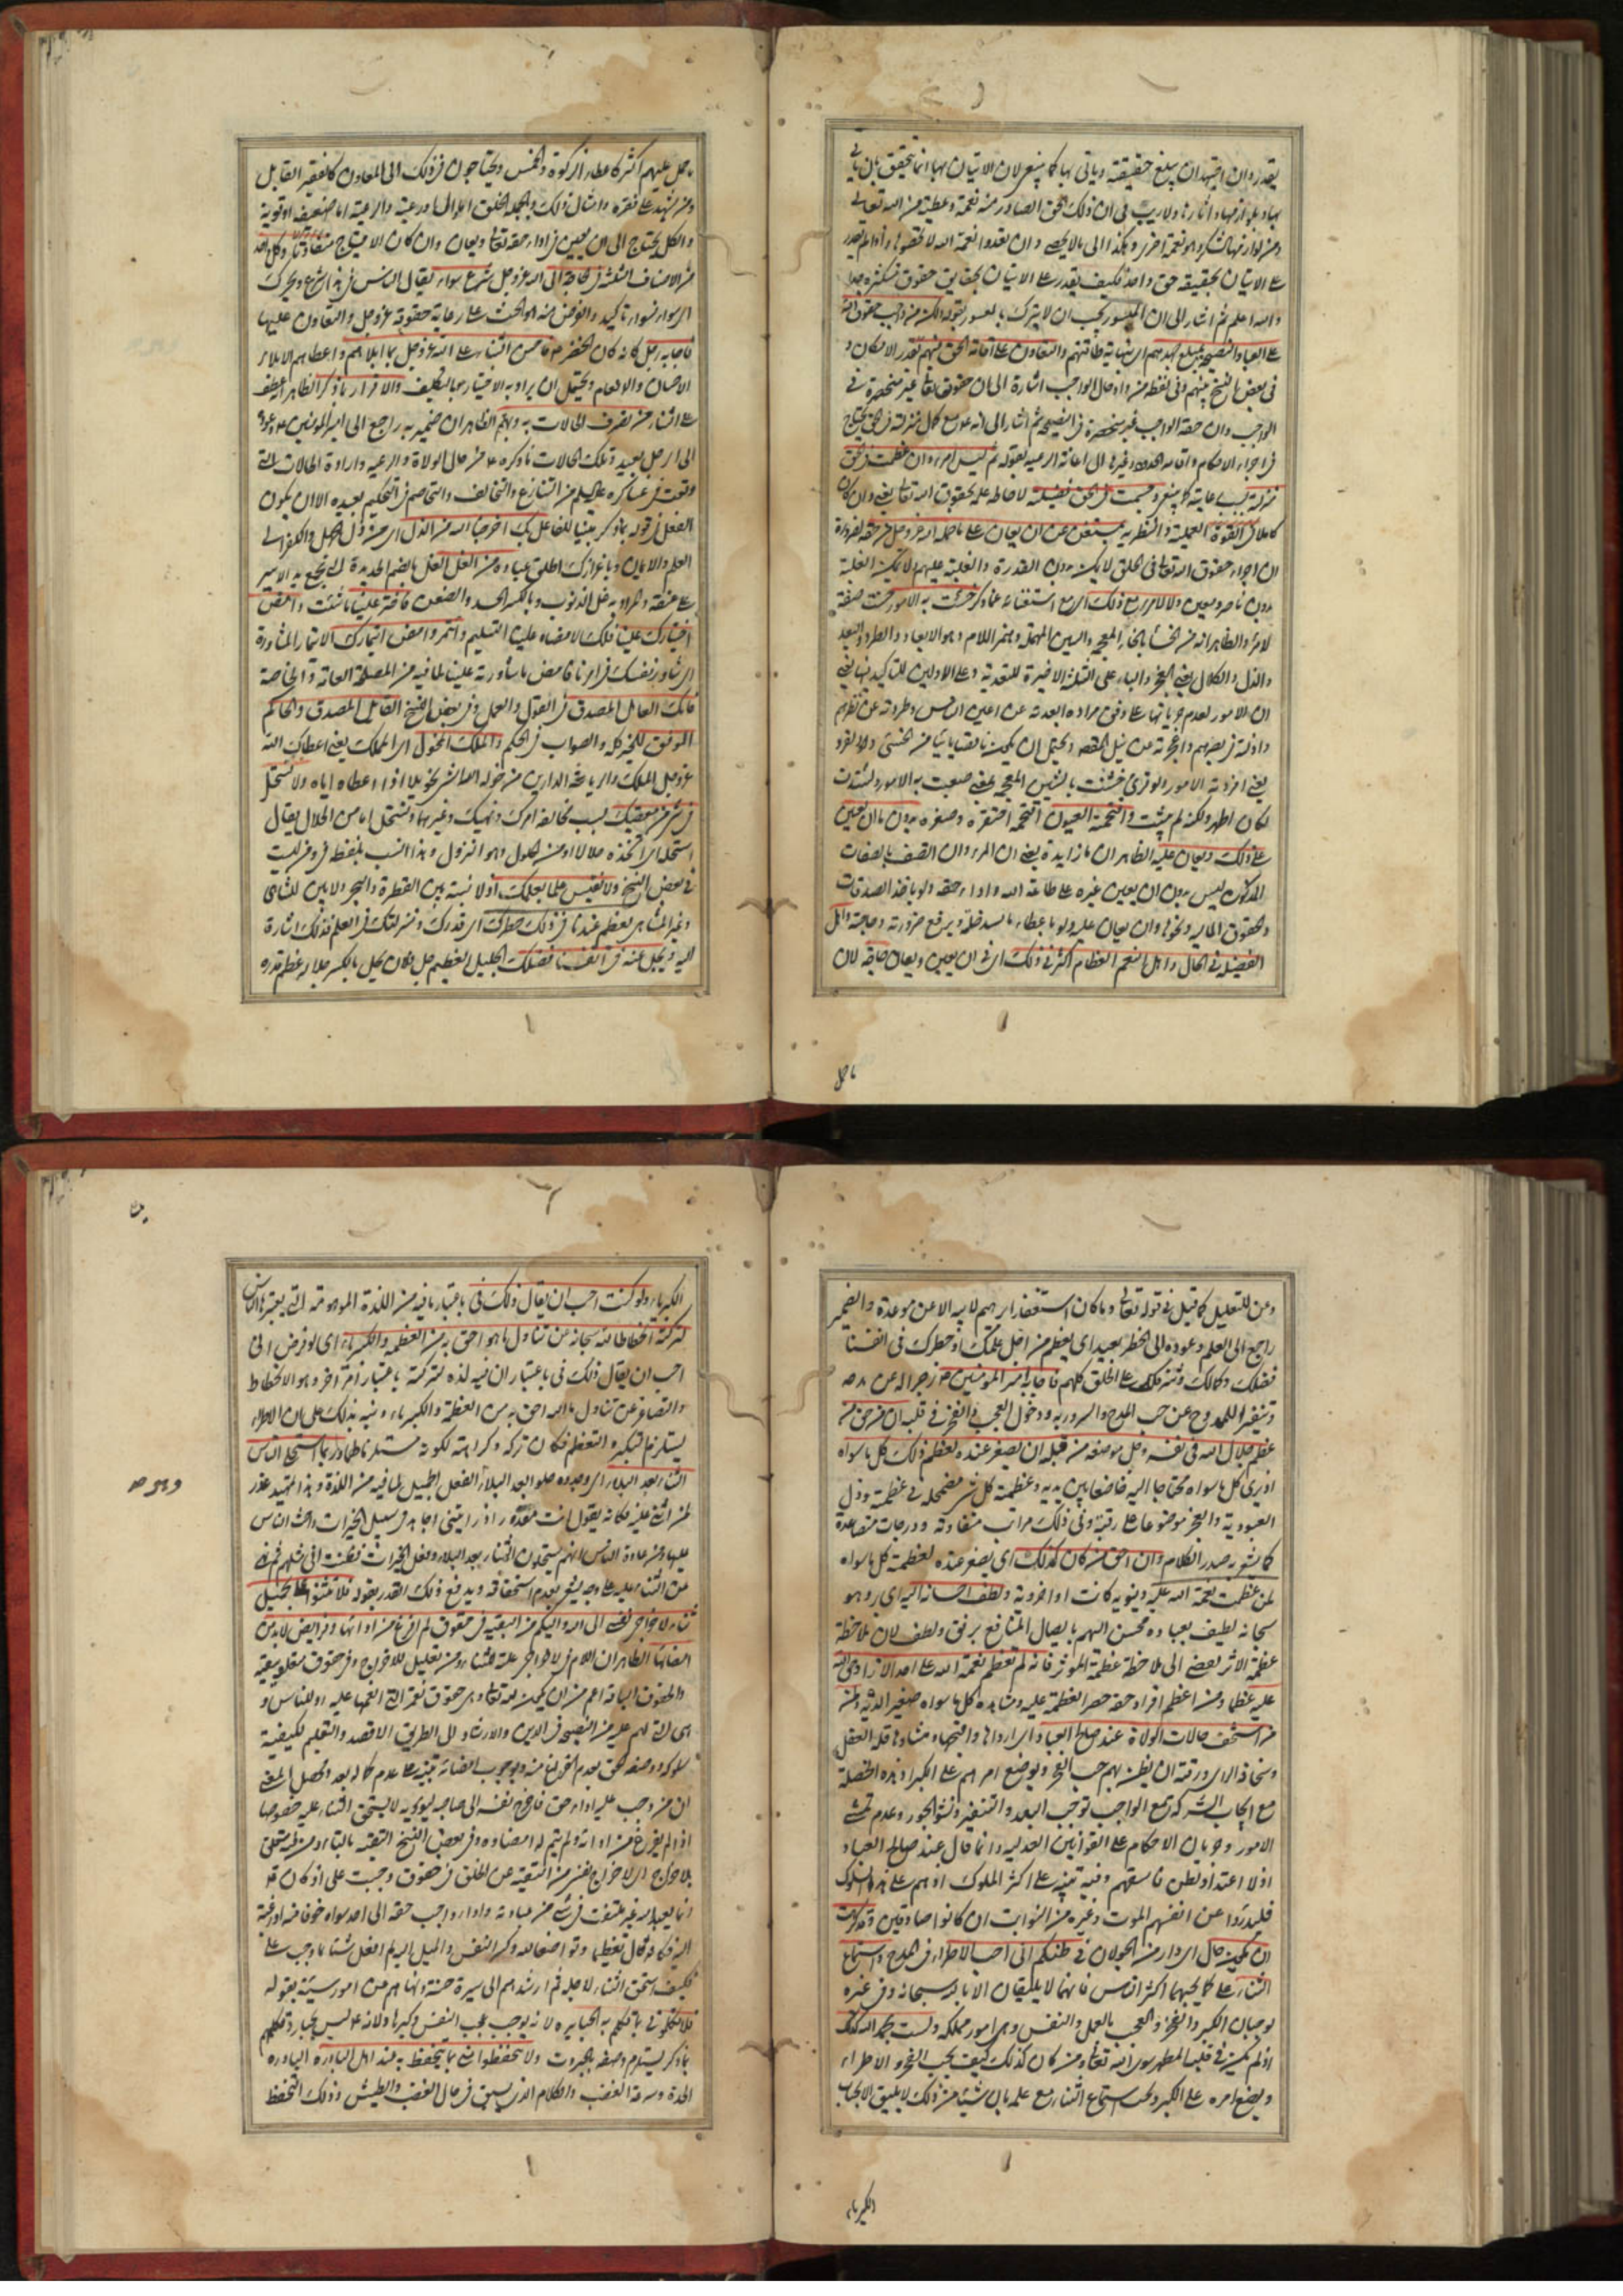 يقدر وان اجتهد ان يبلغ حقيقته وياتي بها كما ينبغي لان الاتيان بها انما يتحقق بان ياتي
بها وبلوازمها واثارها ولا ريب في ان ذلك الحق الصادر منه نعمة وعطية من الله تعالى
ومن لوازمها الشكر وهو نعمة اخرى وهكذا الى ما لا يحصى وان تعدوا نعمة الله لا تحصوها واذا لم يقدر
على الاتيان بحقيقة حق واحد فكيف يقدر على الاتيان بحقايق حقوق متكثرة جدا
والله اعلم ثم اشار الى ان الميسور يجب ان لا يترك بالمعسور بقوله ولكن من واجب حقوق الله
على العباد النصيحة بمبلغ جهدهم اي نهاية طاقتهم والتعاون على اقامة الحق بينهم بقدر الامكان و
في بعض النسخ بينهم وفي لفظ من وادخال الواجب اشارة الى ان حقوقه تعالى غير منحصرة في
الواجب وان حقه الواجب غير منحصرة في النصيحة ثم اشار الى انه مع كمال منزلته في الحق يحتاج
في اجراء الاحكام واقامة الحدود وغيرها الى اعانة الرعية بقوله ثم ليس امرء وان عظمت في الحق
منزلته بسبب رعايته كما ينبغي وجسمت في الحق فضيلته لاحاطة علمه بحقوق الله تعالى يعني وان كان
كاملا في القوة العملية والنظرية بمستغن عن ان يعان على ما حمله الله عز وجل من حقه لضرورة
ان اجراء حقوق الله تعالى في الخلق لا يمكن بدون القدرة والغلبة عليهم ولا يمكن الغلبة
بدون ناصر ومعين ولا لامرء مع ذلك اي مع استغنائه عما ذكر خسئت به الامور خسئت صفة
لامرء والظاهر انه من الخسأ بالخاء المعجمة والسين المهملة وهمز اللام وهو الابعاد والطرد والبعد
والذل والكلال يعني العجز والباء على الثلثة الاخيرة للتعدية وعلى الاولين للتاكيد فيها يعني
ان الامور لعدم جريانها على وفق مراده ابعدته عن اعين الناس وطردته عن نظرهم
واذلته في بصرهم واعجزته عن نيل المقصد ويحتمل ان يكون ناقصا يائيا من الخسي وهو الفرد
يعني افردته الامور ولو قرئ خشنت بالشين المعجمة بمعنى صعبت به الامور ولشدت
لكان اظهر ولكنه لم يثبت واقتحمته العيون اقتحمه احتقره وصغره بدون ما ان يعين
على ذلك ويعان عليه الظاهر ان ما زايدة يعني ان المرء وان اتصف بالصفات
المذكورة ليس بدون ان يعين غيره على طاعة الله واداء حقه ولو باخذ الصدقات
والحقوق المالية ونحوها وان يعان عليه ولو باعطاء ما يسد خلة ويرفع ضرورته وحاجته واهل
الفضيلة في الحال واهل النعم العظام اكثر في ذلك اي في ان يعين ويعان حاجة لان
ما حمل
ما حمل عليهم اكثر كاعطاء الزكوة والخمس ويحتاجون في ذلك الى المعاون كالفقير القابل
ومن يشهد على فقره وامثال ذلك وبالجملة الخلق اما والى او رعية والرعية اما ضعيفة او قوية
والكل يحتاج الى ان يعين في اداء حقه تعالى ويعان وان كان الاحتياج متفاوتا وكل واحد
من الاصناف الثلثة في الحاجة الى الله عز وجل شرع سواء يقال الناس في هذا شرع ويحرك
اي سواء فسواء تاكيد والغرض منه هو الحث على رعاية حقوقه عز وجل والتعاون عليها
فاجابه رجل كانه كان الخضر ع فاحسن الثناء على الله عز وجل بما ابلاهم واعطاهم الابلاء
الاحسان والانعام ويحتمل ان يراد به الاختبار بالتكليف والاقرار بما ذكر الظاهر انه عطف
على الثناء من تصرف الحالات به وبهم الظاهر ان ضمير به راجع الى امير المؤمنين ع وعوده
الى الرجل بعيد وتلك الحالات ما ذكره ع من حال الولاة والرعية وارادة الحالات التي
وقعت في عساكره عليه السلم من التنازع والتخالف والتخاصم في التحكيم بعيدة الا ان يكون
الفعل في قوله بما ذكر مبنيا للفاعل بك اخرجنا الله من الذل اي من ذل الجهل والكفر الى
العلم والايمان وباعزازك اطلق عباده من الغل الغل بالضم الحديدة التي تجمع يد الاسير
على عنقه والمراد به غل الذنوب وبالكسر الحسد والضغن فاختر علينا ما شئت وامض
اختيارك علينا فلك الامضاء وعلينا التسليم وائتمر وامض ائتمارك الائتمار المشاورة
اي شاور نفسك في امرنا فامض ما شاورته علينا لما فيه من المصلحة العامة والخاصة
فانك القائل المصدق في القول والعمل وفي بعض النسخ القائل المصدق والحاكم
الموفق للخير كله والصواب في الحكم والملك المخول اي المملك يعني اعطاك الله
عز وجل الملك والرياسة في الدارين من خوله الله الشي تخويلا اذا اعطاه اياه ولا نستحل
في شيء من معصيتك بسبب مخالفة امرك ونهيك وغيرهما ونستحل اما من الحلال يقال
استحله اي اتخذه حلالا او من الحلول وهو النزول وهذا انسب بلفظة في وفي ليست
في بعض النسخ ولا نقيس علما بعلمك اذ لا نسبة بين القطرة والبحر ولا بين المتناهي
وغير المتناهي يعظم عندنا في ذلك خطرك اي قدرك ومنزلتك في العلم فذلك اشارة
اليه ويجل عنه في انفسنا فضلك الجليل العظيم جل فلان يجل بالكسر جلالة عظم قدره
وعن للتعليل كما قيل في قوله تعالى وما كان استغفار ابرهيم لابيه الا عن موعدة والضمير
راجع الى العلم وعوده الى الخطر بعيد اي يعظم من اجل علمك او خطرك في انفسنا
فضلك وكمالك وشرفك على الخلق كلهم فاجابه امير المؤمنين ع زجرا له عن مدحه
وتنفيرا للممدوح عن حب المدح والسرور به ودخول العجب والفخر في قلبه ان من حق من
عظم جلال الله في نفسه وجل موضعه من قلبه ان يصغر عنده لعظم ذلك كل ما سواه
اذ يرى كل ما سواه محتاجا اليه خاضعا بين يديه وعظمة كل شيء مضمحلة في عظمته وذل
العبودية والعجز موضوعا على رقبته وفي ذلك مراتب متفاوتة ودرجات متصاعدة
كما يشعر به صدر الكلام وان احق من كان كذلك اي يصغر عنده لعظمته كل ما سواه
لمن عظمت نعمة الله عليه دنيوية كانت او اخروية ولطف احسانه اليه اي بره وهو
سبحانه لطيف بعباده محسن اليهم بايصال المنافع برفق ولطف لان ملاحظة
عظمة الاثر يفضي الى ملاحظة عظمة المؤثر فانه لم تعظم نعمة الله على احد الا زاد حق الله
عليه عظما ومن اعظم افراد حقه حصر العظمة عليه ومشاهدة كل ما سواه صغيرا لديه وان
من اسخف حالات الولاة عند صالح العباد اي ارداها واقبحها منشاوها قلة العقل
وسخافة الراى ورقته ان يظن بهم حب الفخر ويوضع امرهم على الكبر اذ هذه الخصلة
مع ايجاب الشركة مع الواجب توجب البعد والتنفير ونشو الجور وعدم تمشي
الامور وجريان الاحكام على القوانين العدلية وانما قال عند صالح العباد
اذ لا اعتداد بظن فاسقهم وفيه تنبيه على اكثر الملوك اذ هم على هذا السلوك
فليدرؤا عن انفسهم الموت وغيره من النوائب ان كانوا صادقين وقد كرهت
ان يكون جال اي دار من الجولان في ظنكم اني احب الاطراء في المدح واستماع
الثناء على كما يحبهما اكثر الناس فانهما لا يليقان الا بالله سبحانه وفي غيره
يوجبان الكبر والفخر والعجب بالعمل والنفس وهي امور مهلكة ولست بحمد الله كذلك
اذ لم يكن في قلبه المطهر سوى الله تعالى ومن كان كذلك كيف يحب الفخر والاطراء
ويضع امره على الكبر ويحب استماع الثناء مع علمه بان شيئا من ذلك لا يليق الا بجناب
الكبرياء
الكبرياء ولو كنت احب ان يقال ذلك في باعتبار ما فيه من اللذة الموهومة التي يعتبرها الناس
لتركته انحطاطا لله سبحانه عن تناول ما هو احق به من العظمة والكبرياء اي لو فرض اني
احب ان يقال ذلك في باعتبار ان فيه لذة لتركته باعتبار امر اخر وهو الانحطاط
والتصاغر عن تناول ما الله احق به من العظمة والكبرياء ونبه بذلك على ان الاطراء
يستلزم التكبر والتعظم فكان تركه وكراهته لكونه مستلزما لهما وربما استحلى الناس
الثناء بعد البلاء اي وجدوه حلوا بعد البلاء الفعل الجميل لما فيه من اللذة وهذا تمهيد عذر
لمن اثنى عليه فكانه يقول انت معذور اذ رايتني اجاهد في سبيل الخيرات واحث الناس
عليها ومن عادة الناس انهم يستحلون الثناء بعد البلاء وفعل الخيرات فظننت اني مثلهم ثم نهى
عن الثناء عليه على وجه يشعر بعدم استحقاقه ويدفع ذلك العذر بقوله فلا تثنوا على بجميل
ثناء لاخراجي نفسي الى الله واليكم من البقية في حقوق لم افرغ من ادائها وفرايض لا بد من
امضائها الظاهر ان اللام في لاخراجي علة للثناء ومن تعليل للاخراج وفي حقوق متعلق ببقية
والحقوق الباقية اعم من ان يكون لله تعالى وهي حقوق نعمه التي انعمها عليه او للناس و
هي التي لهم عليه من النصيحة في الدين والارشاد الى الطريق الاقصد والتعليم لكيفية
سلوكه ووصف الحق بعدم الفراغ منه وبوجوب امضائه تنبيه على عدم كماله بعد ومحصل المعنى
ان من وجب عليه اداء حق فاخرج نفسه الى صاحبه ليؤديه لا يستحق الثناء عليه خصوصا
اذا لم يفرغ من ادائه ولم يتم له امضاؤه وفي بعض النسخ التقية بالتاء ومن متعلق
باخراجي اي لاخراجي نفسي من التقية عن الخلق في حقوق وجبت على اذ كان ع
انما يعبد الله غير ملتفت في شيء من عبادته واداء واجب حقه الى احد سواه خوفا منه او رغبة
اليه فكانه قال تعظيما وتواضعا لله وكسر النفس والميل اليه لم افعل شيئا ما وجب على
فكيف استحق الثناء لاجله ثم ارشدهم الى سيرة حسنة ونهاهم عن امور سيئة بقوله
فلا تكلموني بما تكلم به الجبابرة لانه يوجب عجب النفس وكبرها ولانه ع ليس بجبار وتكلمهم
بما ذكر يستلزم وصفه بالجبروت ولا تتحفظوا مني بما يتحفظ به عند اهل البادرة البادرة
الحدة وسرعة الغضب والكلام الذي يسبق في حال الغضب والطيش وذلك التحفظ